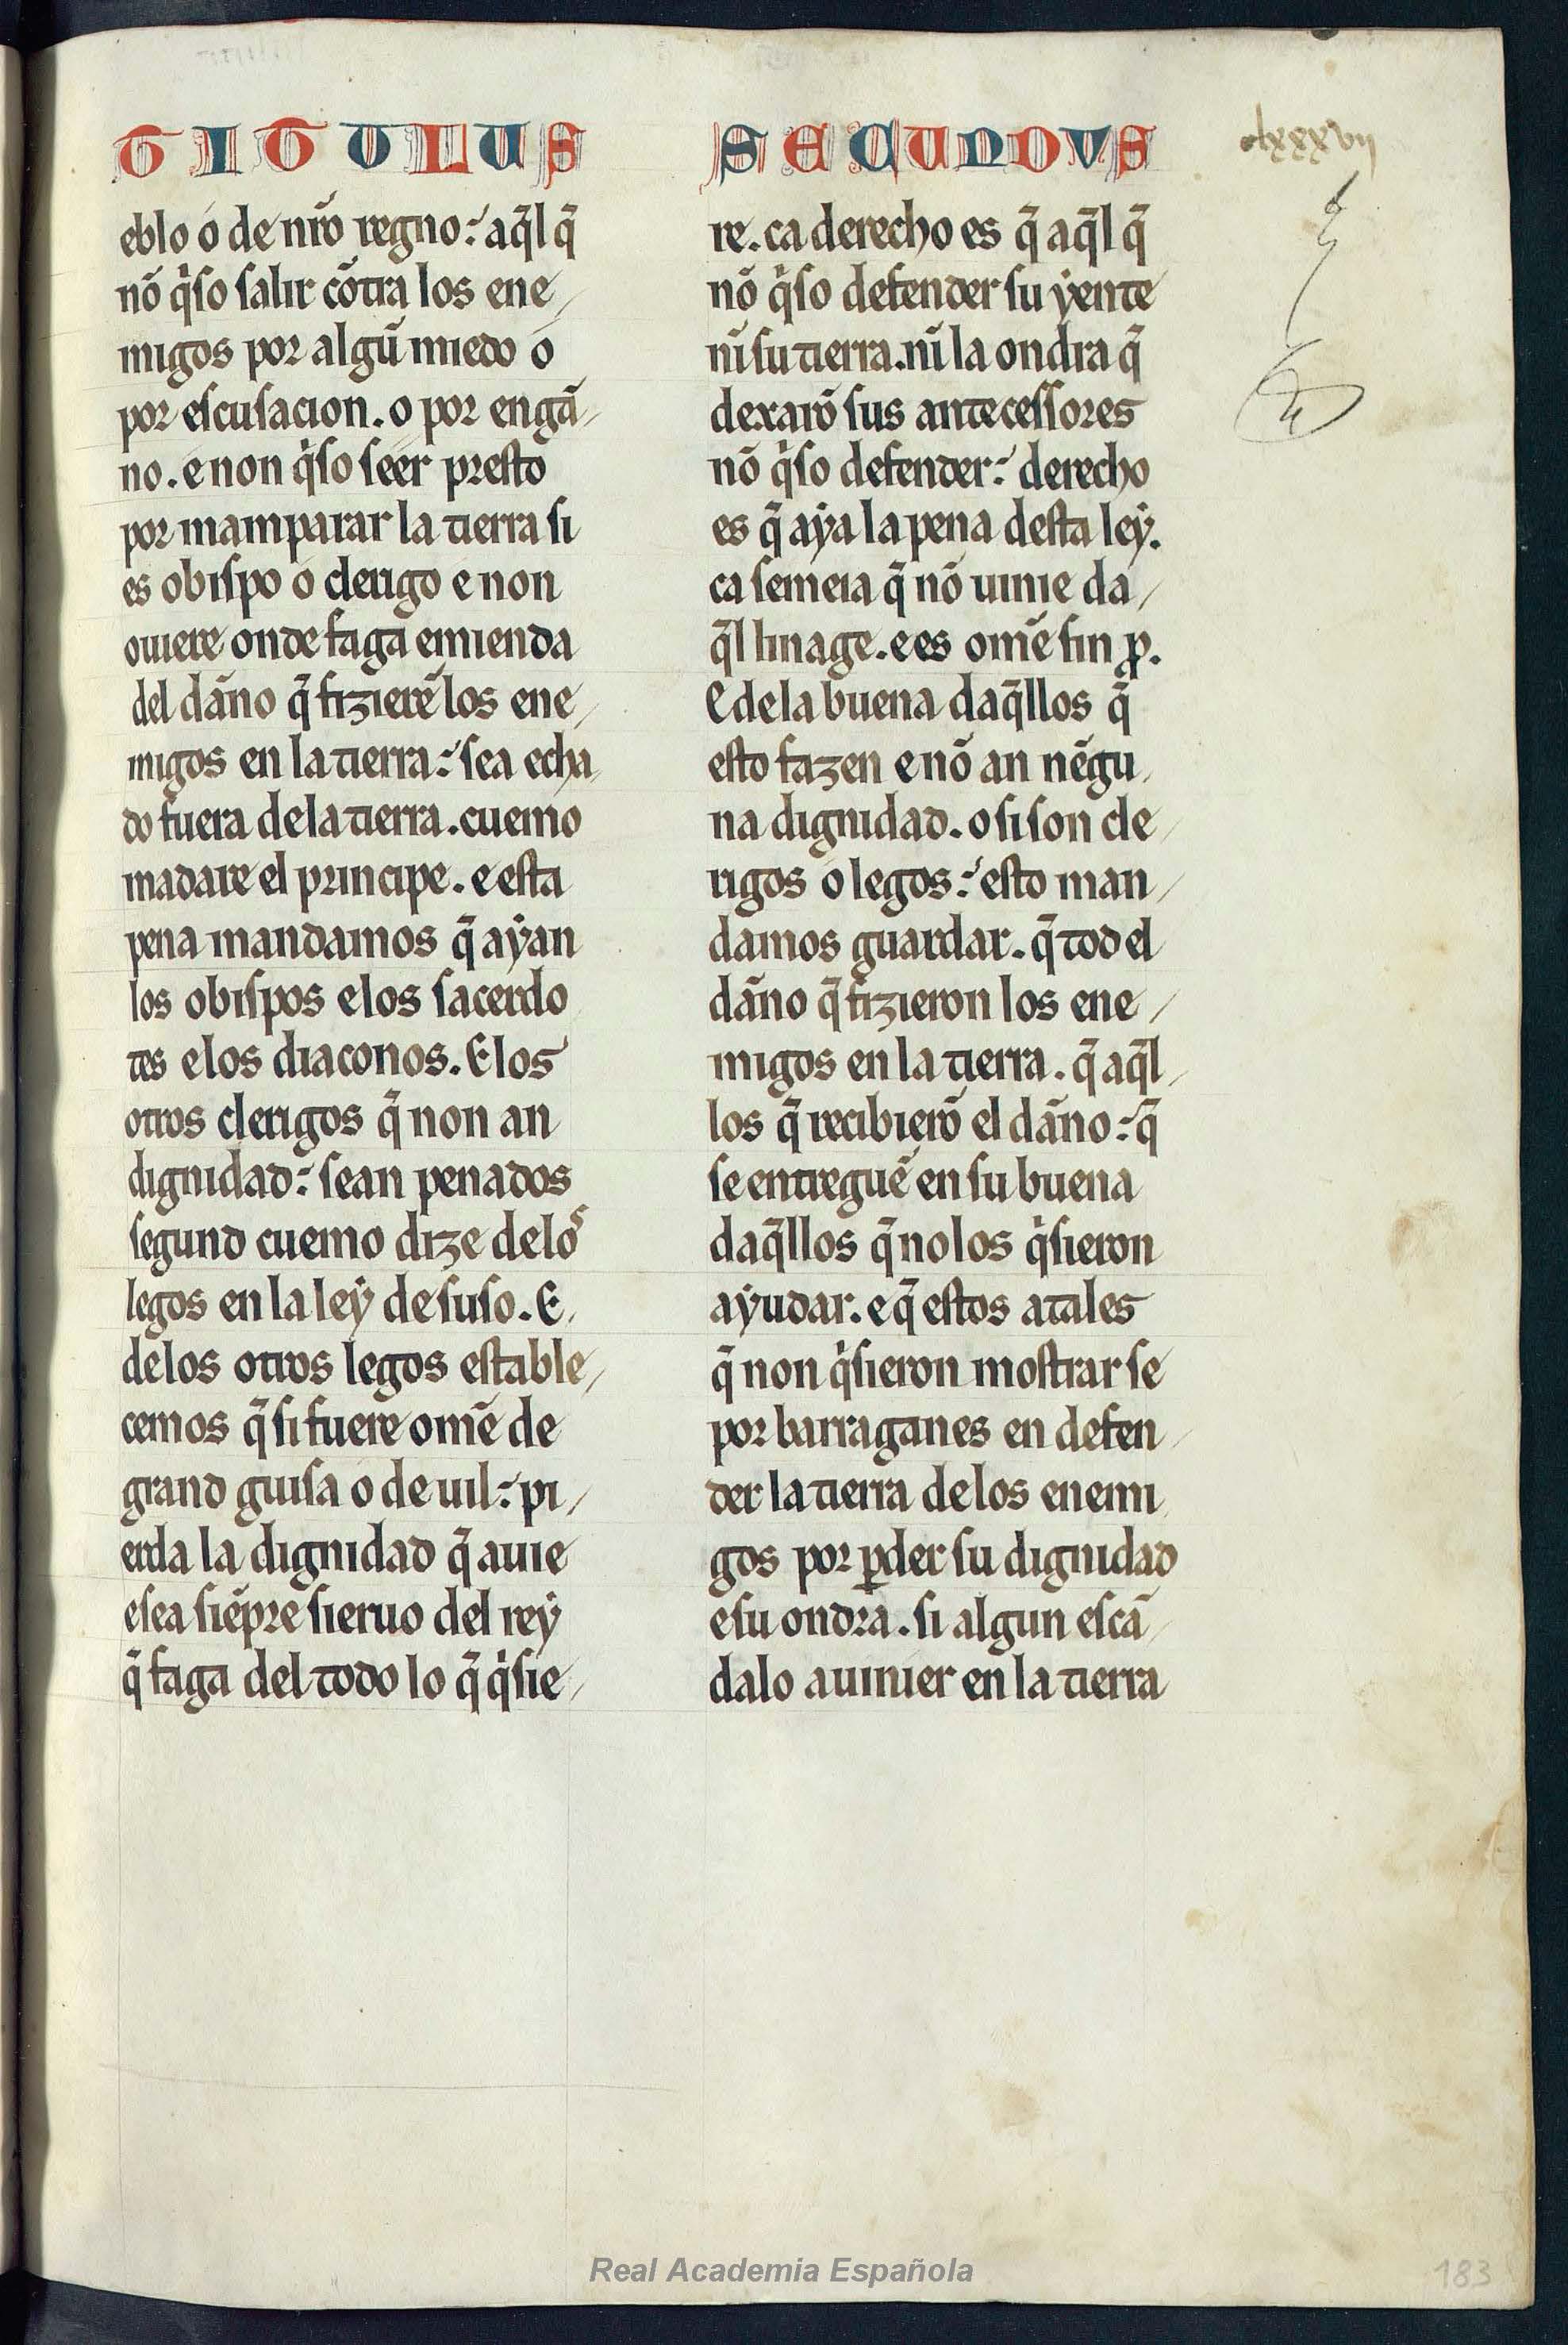 TITULUS
eblo o de nr̃o regno:́ aq̃l q̃
nõ q̇ſo ſalir cõtra los ene/
migos por algũ miedo o
por eſcuſacion. o por engã/
no. e non q̇ſo ſeer preſto
por mamparar la tierra ſi
es obiſpo o clerigo e non
ouiere onde faga emienda
del dãno q̃ fizierẽ los ene/
migos en la tierra:́ ſea echa/
do fuera dela tierra. cuemo
madare el principe. e eſta
pena mandamos q̃ aẏan
los obiſpos e los ſacerdo
tes e los diaconos. E los
otros clerigos q̃ non an
dignidad:́ ſean penados
ſegund cuemo dize delos
legos en la leẏ de ſuſo. E/
delos otros legos eſtable/
cemos q̃ ſi fuere omẽ de
grand guiſa o de uil:́ pi/
erda la dignidad q̃ auie
e ſea ſiẽpre ſieruo del reẏ
q̃ faga del todo lo q̃ q̇ſie/
SECUNDVS
re. ca derecho es q̃ aq̃l q̃
nõ q̇ſo defender ſu ẏente
nĩ ſu tierra. nĩ la ondra q̃
dexarõ ſus anteceſſores
nõ q̇ſo defender:́ derecho
es q̃ aẏa la pena deſta leẏ.
ca ſemeia q̃ nõ uinie da/
q̃l linage. e es omẽ ſin ꝓ.
E dela buena daq̃llos q̃
eſto fazen e nõ an nẽgu/
na dignidad. o ſi ſon cle/
rigos o legos:́ eſto man/
damos guardar. q̃ tod el
dãno q̃ fizieron los ene/
migos en la tierra. q̃ aq̃l/
los q̃ recibierõ el dãno:́ q̃
ſe entreguẽ en ſu buena
daq̃llos q̃ nolos q̇ſieron
aẏudar. e q̃ eſtos atales
q̃ non q̇ſieron moſtrar ſe
por barraganes en defen/
der la tierra delos enemi/
gos por ꝑder ſu dignidad
e ſu ondra. ſi algun eſcã/
dalo auinier en la tierra
clxxxvij
Real Academia Española
183